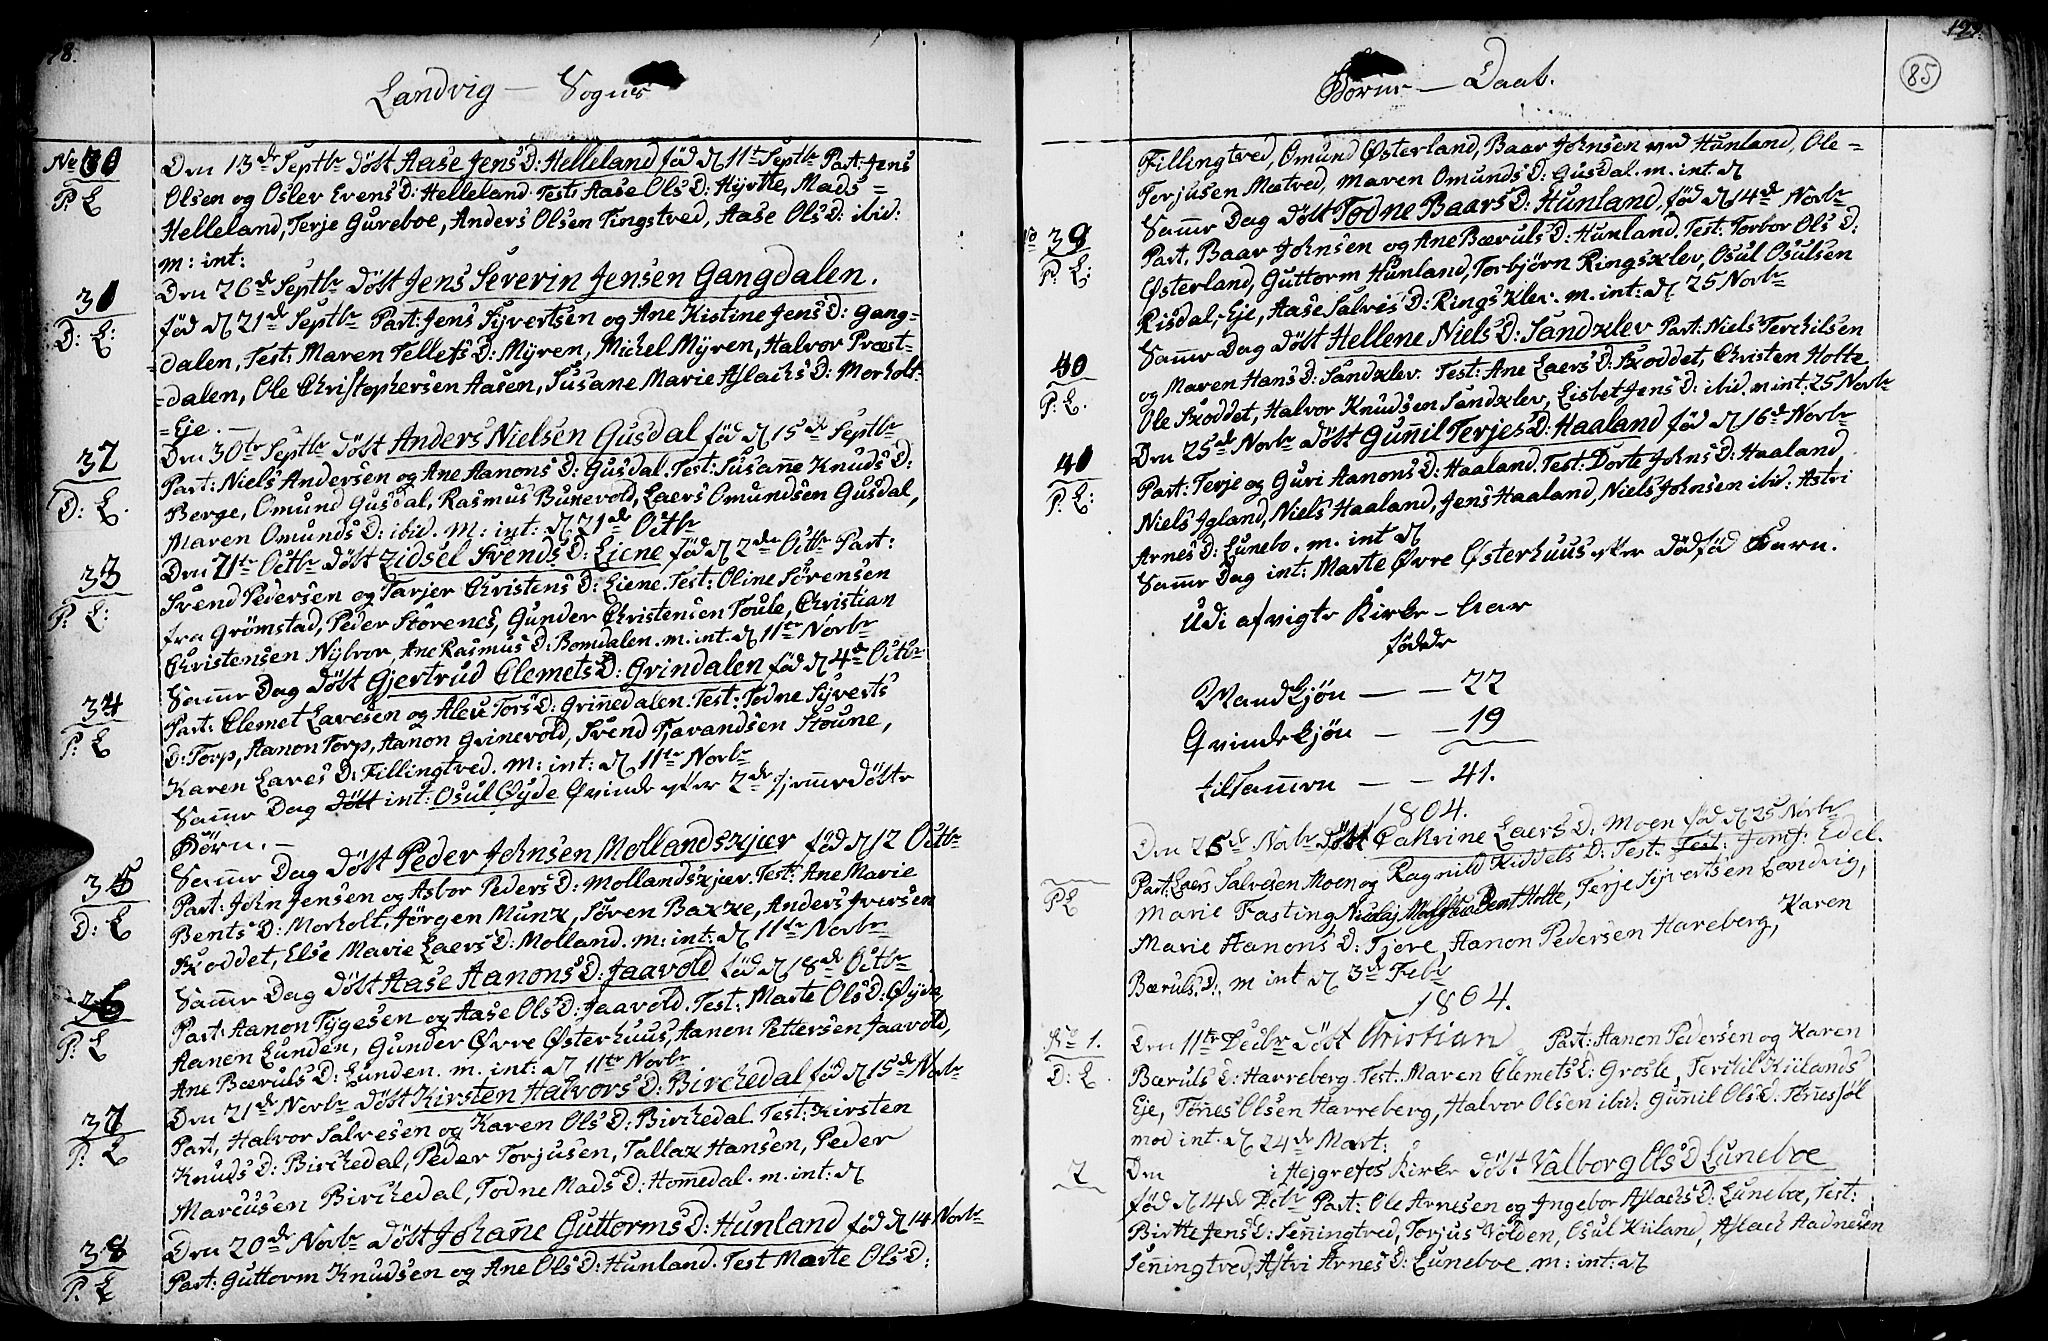 Landvig — Sogns
No 30
P: L
Den 13de Septbr døbt Aase JensD: Helleland fød d 11te Septbr Part: Jens
Olsen og Oslev EvensD: Helleland. Test: Aase OlsD: Hyrtte, Mads =
Helleland, Terje Gureboe, Anders Olsen Tingstved, Aase OlsD: ibid:
m: int:
31
D: L:
Den 26de Septbr døbt Jens Severin Jensen Gangdalen.
fød d 21de Septbr Part: Jens Syvertsen og Ane Kistine JensD: Gang=
=dalen, Test: Maren TellefsD: Myren, Michel Myren, Halvor Præst-
=dalen, Ole Christophersen Aasen, Susane Marie AslachsD: Morholt-
=Eje. —
32
D: L.
Den 30te Septbr døbt Anders Nielsen Gusdal fød d 15de Septbr
Part: Niels Andersen og Ane AanonsD: Gusdal. Test: Susanne KnudsD:
Berge, Omund Gusdal, Rasmus Bunevold, Laers Omundsen Gusdal,
Maren OmundsD: ibid. m: int: d 21de Octbr
33
P: L:
Den 21te Octbr døbt Zidsel SvendsD: Eiene fød d 2den Octbr Part:
Svend Pedersen og Tarjer ChristensD: Eiene. Test: Oline Sørensen
fra Grömstad, Peder Störenes, Gunder Christensen Toule, Christian
Christensen Nybroe, Ane RasmusD: Bomdalen. m. int. d 11te Novbr
34
P: L
Samme Dag døbt Gjertrud ClemetsD: Grindalen fød d 4de Octbr
Part: Clemet Lavesen og Aleu TorsD: Grinnedalen. Test: Todne Syverts
D: Torp, Aanon Torp, Aanon Grinevold, Svend Tjavandsen Stoune,
Karen LavesD: Fillingtved. m: int: d 11te Novbr
Samme Dag døbt int: Osul Øyde Qvinde efter 2de hjemmedøbte
Börn. —
35
D: L
Samme Dag døbt Peder Johnsen Mollandskjær fød d 12 Octbr
Part: John Jensen og Asbor PedersD: Mollandskjær. Test: Ane Marie
BentsD: Morholt, Jörgen Munk, Sören Bakke, Anders Iversen
Skoddet, Else Marie LaersD: Molland. m: int: d 11te Novbr
36
P: L
Samme Dag døbt Aase AanonsD: Jaavold fød d 18de Octbr
Part: Aanon Tygesen og Aase OlsD: Jaavold. Test: Marte OlsD: Øyde,
Aanon Lunden, Gunder Øvre Østerhuus, Aanon Pettersen Jaavold,
Ane BærulsD: Lunden. m. int: d 11te Novbr
37
P: L
Den 21de Novbr døbt Kirsten HalvorsD: Birchedal fød d 15de Novbr
Part, Halvor Salvesen og Karen OlsD: Birchedal. Test: Kirsten
KnudsD: Birchedal, Peder Torjusen, Tallak Hansen, Peder
Marcusen Birchedal, Todne MadsD: Hommedal. m. int: d
38
P: L
Den 20de Novbr døbt Johanne GuttormsD: Hunland fød d 14 Novbr
Part: Guttorm Knudsen og Ane OlsD: Hunland. Test Marte OlsD:
Börne — Daab.
85
Fillingtved, Omund Østerland, Baar Johnsen Hunland, Ole =
Torjusen Mætved, Maren OmundsD: Gusdal. m. int. d
39
P: L:
Samme Dag døbt Todne BaarsD: Hunland, fød d 14de Novbr
Part, Baar Johnsen og Ane BærulsD: Hunland. Test: Torbor OlsD:
Østerland, Guttorm Hunland, Torbjörn Ringsklev, Osul Osulsen
Risdal,-Eje, Aase SalvesD: Ringsklev. m. int: d. 25 Novbr
40
P: L.
Samme Dag døbt Hellene NielsD: Sandklev Part: Niels Terchilsen
og Maren HansD: Sandklev. Test: Ane LaersD: Skoddet, Christen Holte
Ole Skoddet, Halvor Knudsen Sandklev, Lisbet JensD: ibid. m int. 25 Novbr
41
P: L:
Den 25de Novbr døbt Gunnil TerjesD: Haaland fød d 16de Novbr
Part: Terje og Guri AanonsD: Haaland. Test: Dorte JohnsD: Haaland,
Niels Igland, Niels Haaland, Jens Haaland, Niels Johnsen ibid: Astri
ArnesD: Lunebo. m. int d
Samme Dag int: Marte Øvre Østerhuus efter dødfød Barn.
Udi afvigte Kirke-Aar
fødde
Mandkjön — — 22
Qvindekjön — — 19
tilsammen — — 41.
1804.
P L
Den 25de Novbr døbt Cathrine LaersD: Moen fød d 25 Novbr
Part: Laers Salvesen Moen og Ragnild KiddelsD: Test: Test: Jomf: Edel.
Marie Fasting, Bent Holte, Terje Syvertsen Landvig,
Marie AanonsD: Tjore, Aanon Pedersen Hareberg, Karen
BærulsD: m int d 3de Febr
1804.
No 1.
D: L.
Den 11te Decbr døbt Christian Part: Aanon Pedersen og Karen
BærulsD: Harreberg. Test. Maren ClemetsD: Grosle, Terkil Kiilands
Eje, Tønnes Olsen Harreberg, Halvor Olsen ibid: Gunnil OlsD: Tønnessöl
mod int. d 24de Mart:
2
Den i Hejgrefos Kirke døbt Valborg OlsD Luneboe
fød d 14de Decbr Part: Ole Arnesen og Ingebor AslachsD: Luneboe, Test:
Birtte JensD: Senningtved, Torjus Volden, Osul Kiiland, Aslach Aadnesen
Senningtved, Astri ArnesD: Luneboe. m: int: d